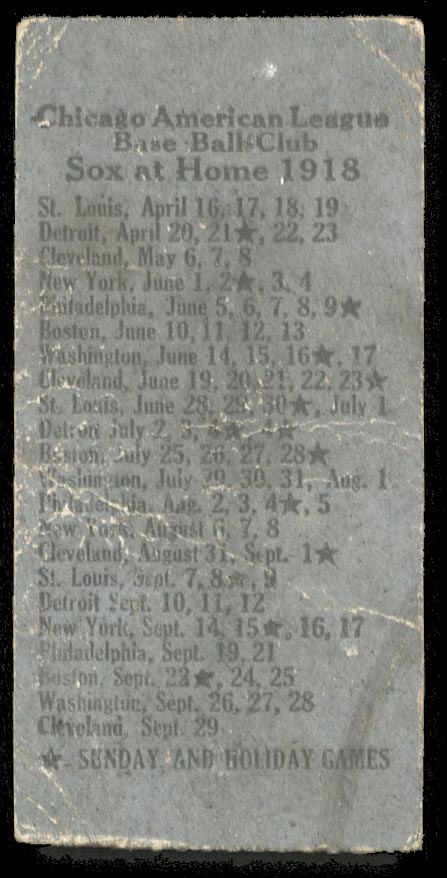 Chicago American League
Base Ball Club
Sox at Home 1918
St. Louis, April 16, 17, 18, 19
Detroit, April 20, 21★, 22, 23
Cleveland, May 6, 7, 8
New York, June 1, 2★, 3, 4
Philadelphia, June 5, 6, 7, 8, 9★
Boston, June 10, 11, 12, 13
Washington, June 14, 15, 16★, 17
Cleveland, June 19, 20, 21, 22, 23★
St. Louis, June 28, 29, 30★, July 1
Detroit July 2, 3, 4★ 4★
Boston, July 25, 26, 27, 28★
Washington, July 29, 30, 31, Aug. 1
Philadelphia, Aug. 2, 3, 4★, 5
New York, August 6, 7, 8
Cleveland, August 31, Sept. 1★
St. Louis, Sept. 7, 8★, 9
Detroit Sept. 10, 11, 12
New York, Sept. 14, 15★, 16, 17
Philadelphia, Sept. 19, 21
Boston, Sept. 22★, 24, 25
Washington, Sept. 26, 27, 28
Cleveland, Sept. 29
★ SUNDAY AND HOLIDAY GAMES